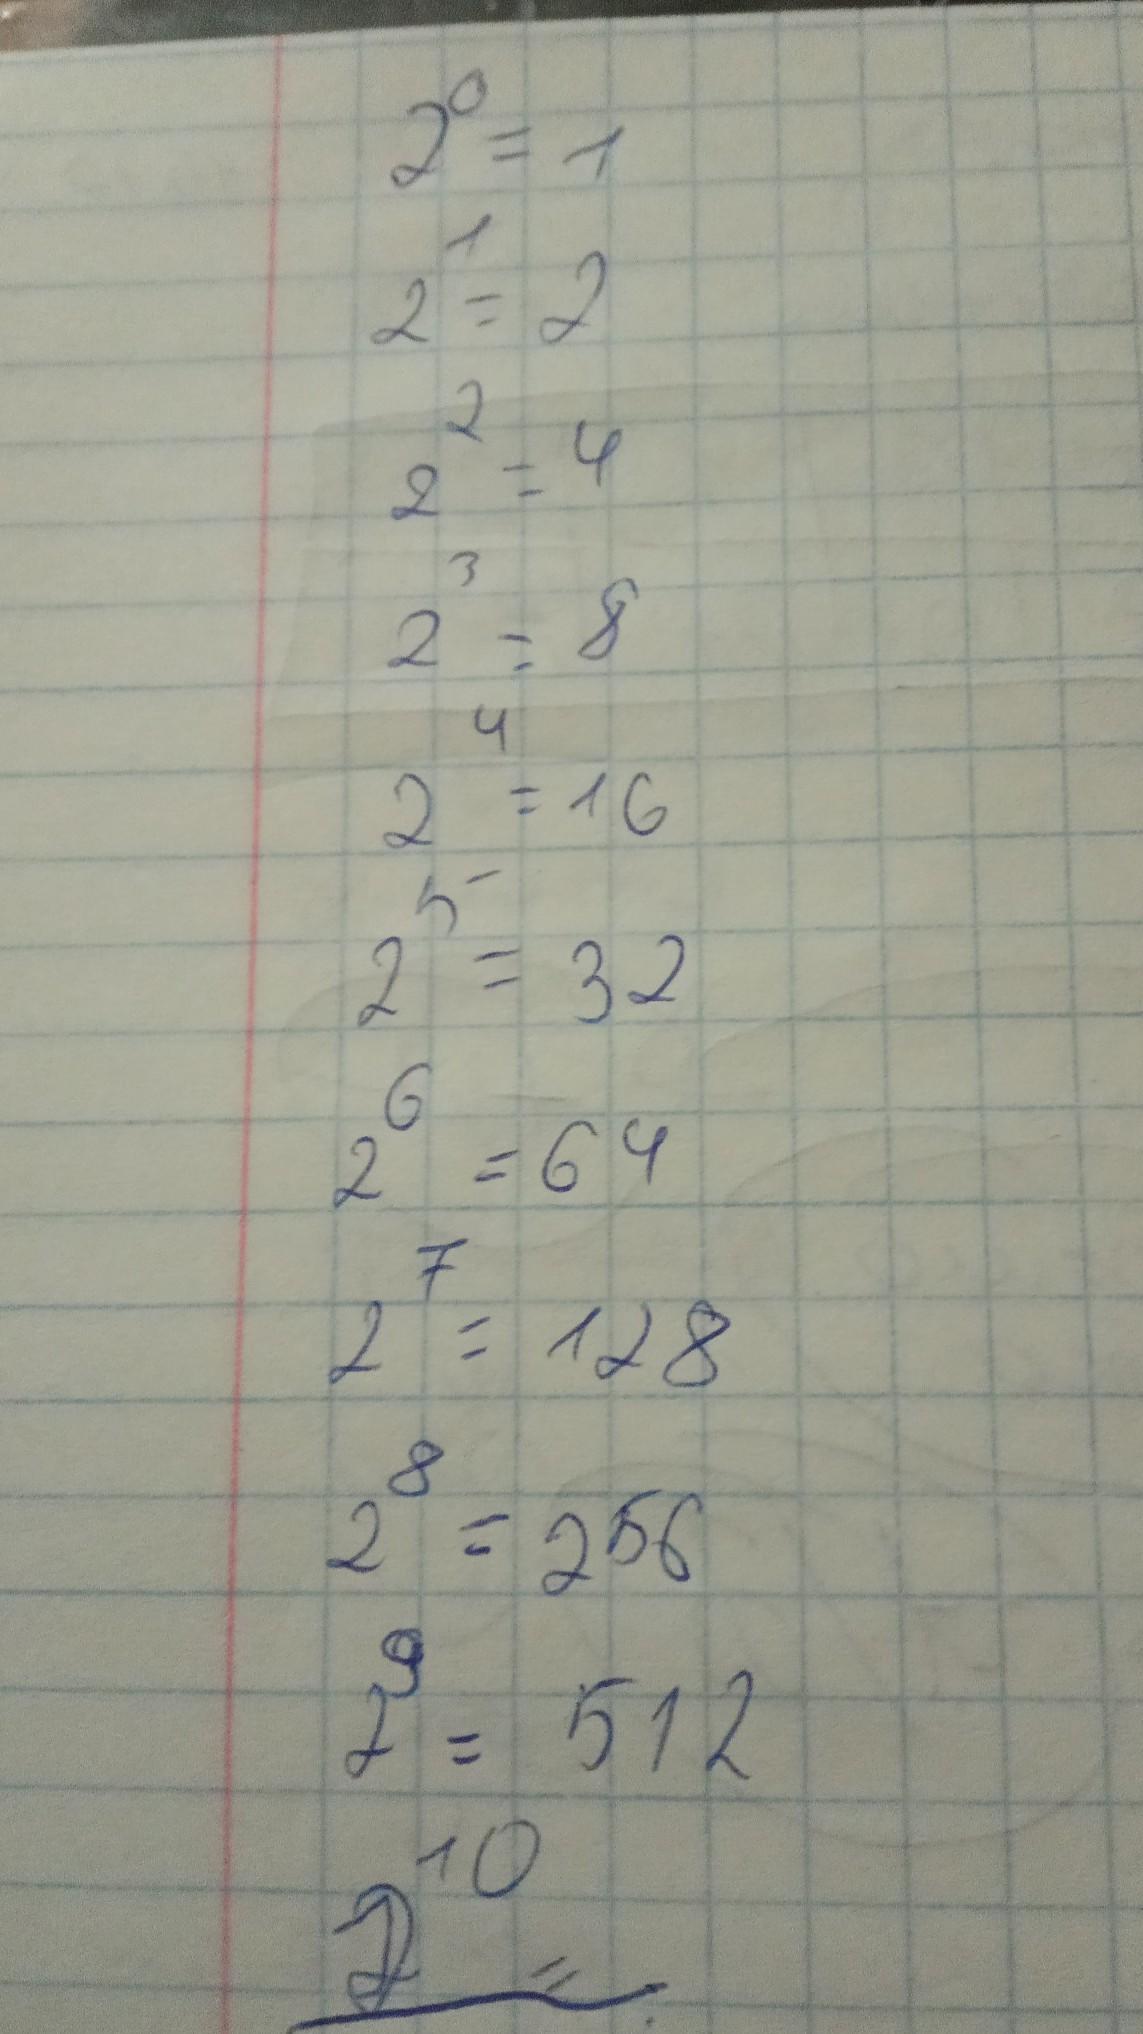 2⁰ = 1
2¹ = 2
2² = 4
2³ = 8
2⁴ = 16
2⁵ = 32
2⁶ = 64
2⁷ = 128
2⁸ = 256
2⁹ = 512
2¹⁰ =